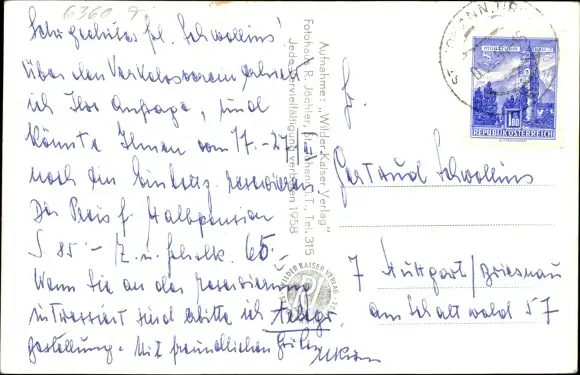 6360
Sehr geehrtes Frl. Schwollius!
Über den Verkehrsverein erhielt
ich Ihre Anfrage, und
könnte Ihnen vom 17. - 27.
noch ein reservieren.
Der Preis f. Halbpension
S 85.- Z. u. 65.-
Wenn Sie an der Reservierung
interessiert sind bitte ich telegr.
Mit freundlichen Grüßen
Aufnahme: „Wilder Kaiser Verlag"
Fotohaus R. Jöchler, St. Johann i. T., Tel. 315
Jede Vervielfältigung verboten 1958
WILDER KAISER VERLAG
ST. JOHANN
REPUBLIK ÖSTERREICH
1.80
Gertraud Schwollius
7 Stuttgart/
am Schattwald 57